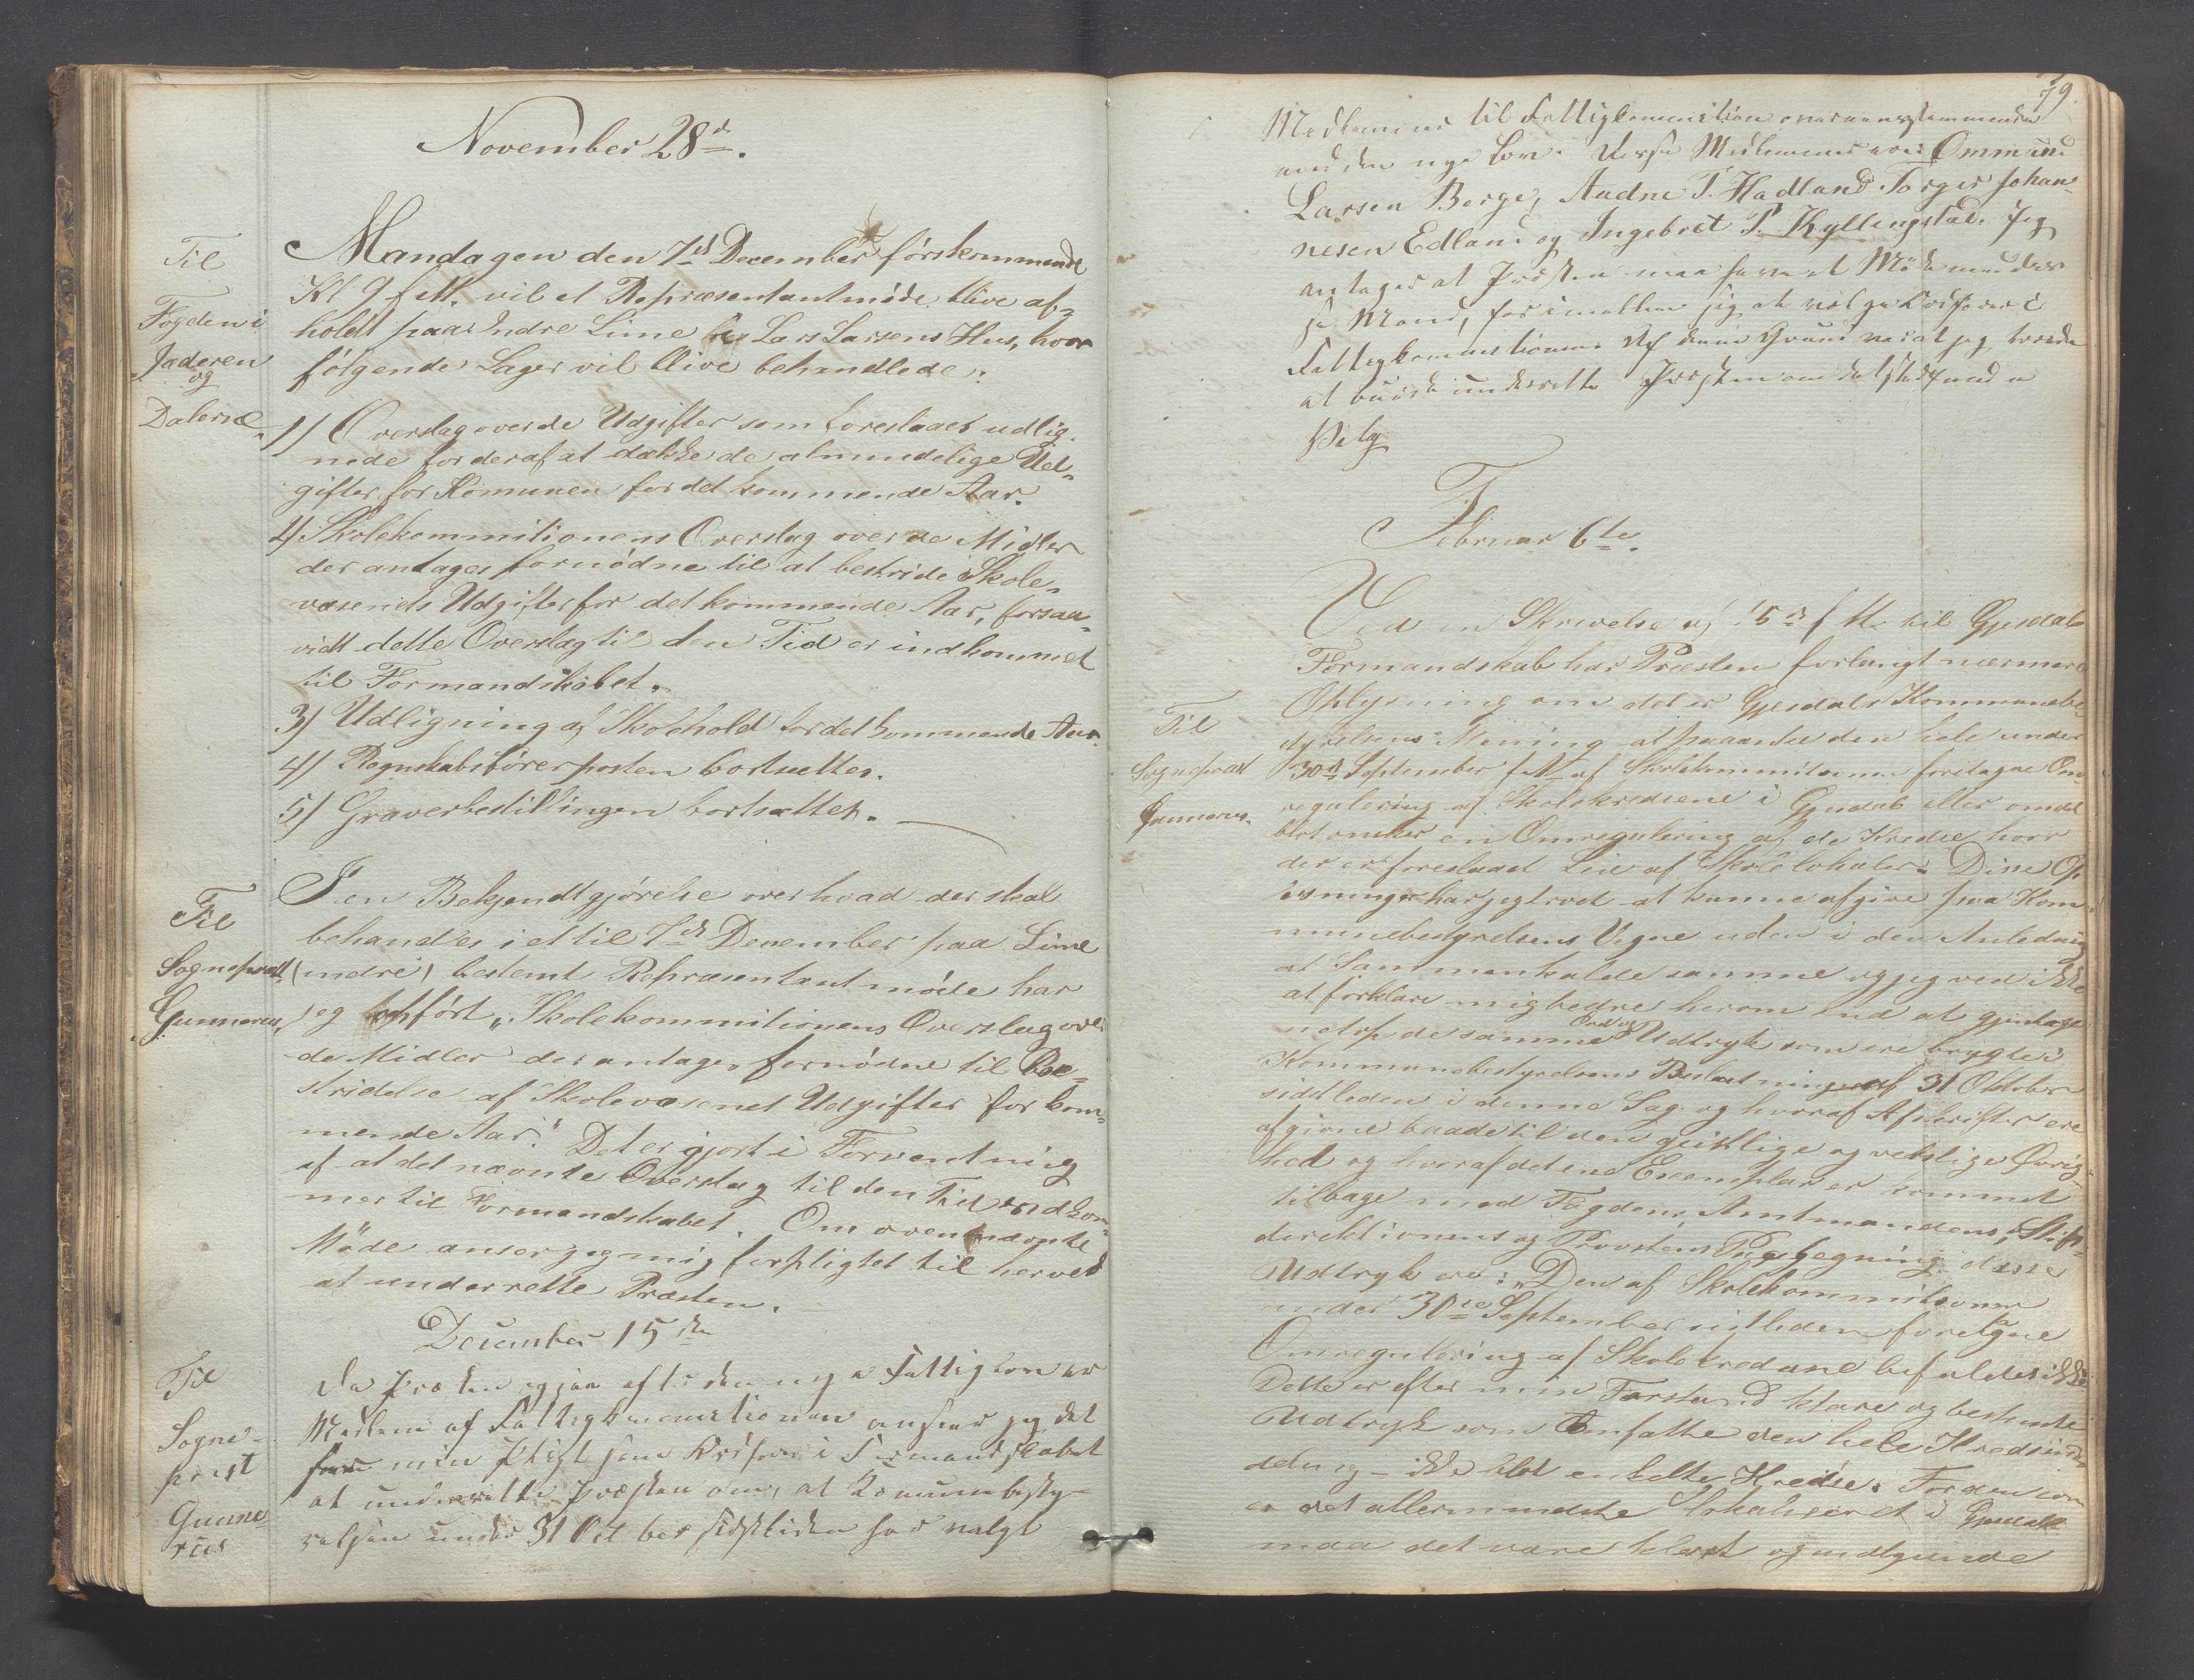 November 28d.
Til
Fogden i
Jæderen
og
Dalerne.
Mandagen den 7de December førstkommende
Kl 9 f. M. vil et Repræsentantmøde blive af-
holdt paa Indre Lime i Lars Larsens Hus, hvor
følgende Sager vil blive behandlede:
1) Overslag over de Udgifter som foreslaaes udlig-
nede for deraf at dække de almindelige Ud-
gifter for Komunen for det kommende Aar.
2) Skolekommitionens Overslag over de Midler
der antages fornødne til at bestride Skole-
væsenets Udgifter for det kommende Aar, forsaa-
vidt dette Overslag til den Tid er indkommet
til Formandskabet.
3) Udligning af Skolehold for det kommende Aar.
4) Regnskabsførerposten bortsættes.
5) Graverbestillingen bortsættes.
Til
Sogneprest
Gunnerus,
I en Bekjendtgjørelse over hvad der skal
behandles i et til 7de December paa Lime
(indre) bestemt Repræsentantmøde har
jeg opført „Skolekommitionens Overslag over
de Midler der antages fornødne til Be-
stridelse af Skolevæsenet Udgifter for kom-
mende Aar." Det er gjort i Forventning
af at det nævnte Overslag til den Tid indkom-
mer til Formandskabet. Om ovennævnte
Møde anser jeg mig forpligtet til herved
at underrette Præsten.
December 15de
Til
Sogne-
prest
Gunne-
rus
Da Præsten ogsaa efter den nye Fattiglov er
Medlem af Fattigkommitionen ansees jeg det
for min Pligt som Ordfører i Formandskabet
at underrette Præsten om, at Komunbesty-
relsen under 31 Octber sidstleden har valgt
79.
Medlemmer til Fattigkommition overensstemmende
med den nye Lov. Disse Medlemmer ere Ommund
Larsen Berge, Audne T. Hadland Torger Johan-
nesen Edland og Ingebret P. Kyllingstad. Jeg
antager at Præsten maa have et Møde med dis-
se Mænd, for imellem sig at vælge Ordfører i
Fattigkommitionen. Af denne Grund var at jeg burde
at underrette Præsten om det stedfundne
Valg
Februar 6te.
Til
Sogneprest
Gunnerus.
Ved en Skrivelse af 15de f. M. til Gjesdals
Formandskab har Præsten forlangt nærmere
Oplysning om det er Gjesdals Kommunebe-
styrelsens Mening at paaanke den hele under
30te September f. A. af Skolekommitionen foretagne Om-
regulering af Skolekredsene i Gjesdal eller om det
blot ønsker en Omregulering af de Kredse hvor
der er foreslaaet Leie af Skolelokaler. Disse Op-
lysninger har jeg troet at kunne afgive paa Kom-
munebestyrelsens Vegne uden i den Anledning
at Sammenkalde samme og jeg ved ikke
at forklare mig bedre herom end at gjentage
netop de samme Ord og Udtryk som ere brugte i
Kommunebestyrelsens Beslutninger af 31 Oktober
sidstleden i denne Sag og hvoraf Afskrifter ere
afgivne baade til den geistlige og verslige Øvrig-
hed og hvoraf det ene Exemplar er kommet
tilbage med Fogdens, Amtmandens, Stifts-
direktionens og Provstens Paategning disse
Udtryk ere: „Den af Skolekommitionen
under 30te September sidstleden foretagne
Omregulering af Skolekredsene bifaldes ikke
Dette er efter min Forstand klare og bestemte
Udtryk som omfatte den hele Kredsind-
deling – ikke blot enkelte Kredse. For den som
er det allermindste lokaliseret i Gjesdal
maa det være klart og indlysende